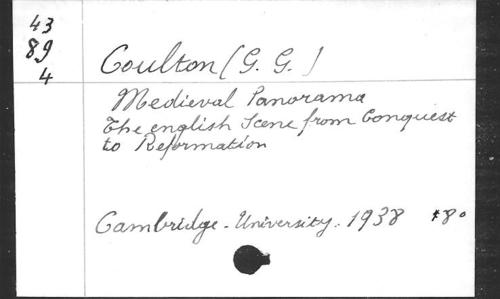 43
89
4
Coulton (G. G.)
Medieval Panorama
The english Scene from Conquest
to Reformation
Cambridge - University. 1938